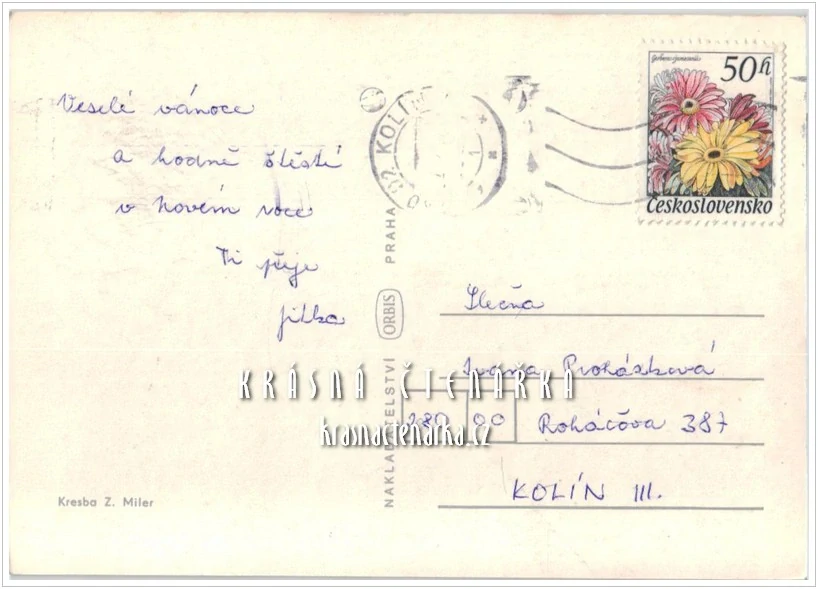 Veselé vánoce
a hodně štěstí
v novém roce
Ti přeje
Jitka
Kresba Z. Miler
NAKLADATELSTVÍ ORBIS PRAHA
KOLÍN
50h
Československo
Slečna
Ivana Procházková
280 00 Roháčova 387
KOLÍN III.
KRÁSNÁ ČTENÁŘKA
krasnactenarka.cz